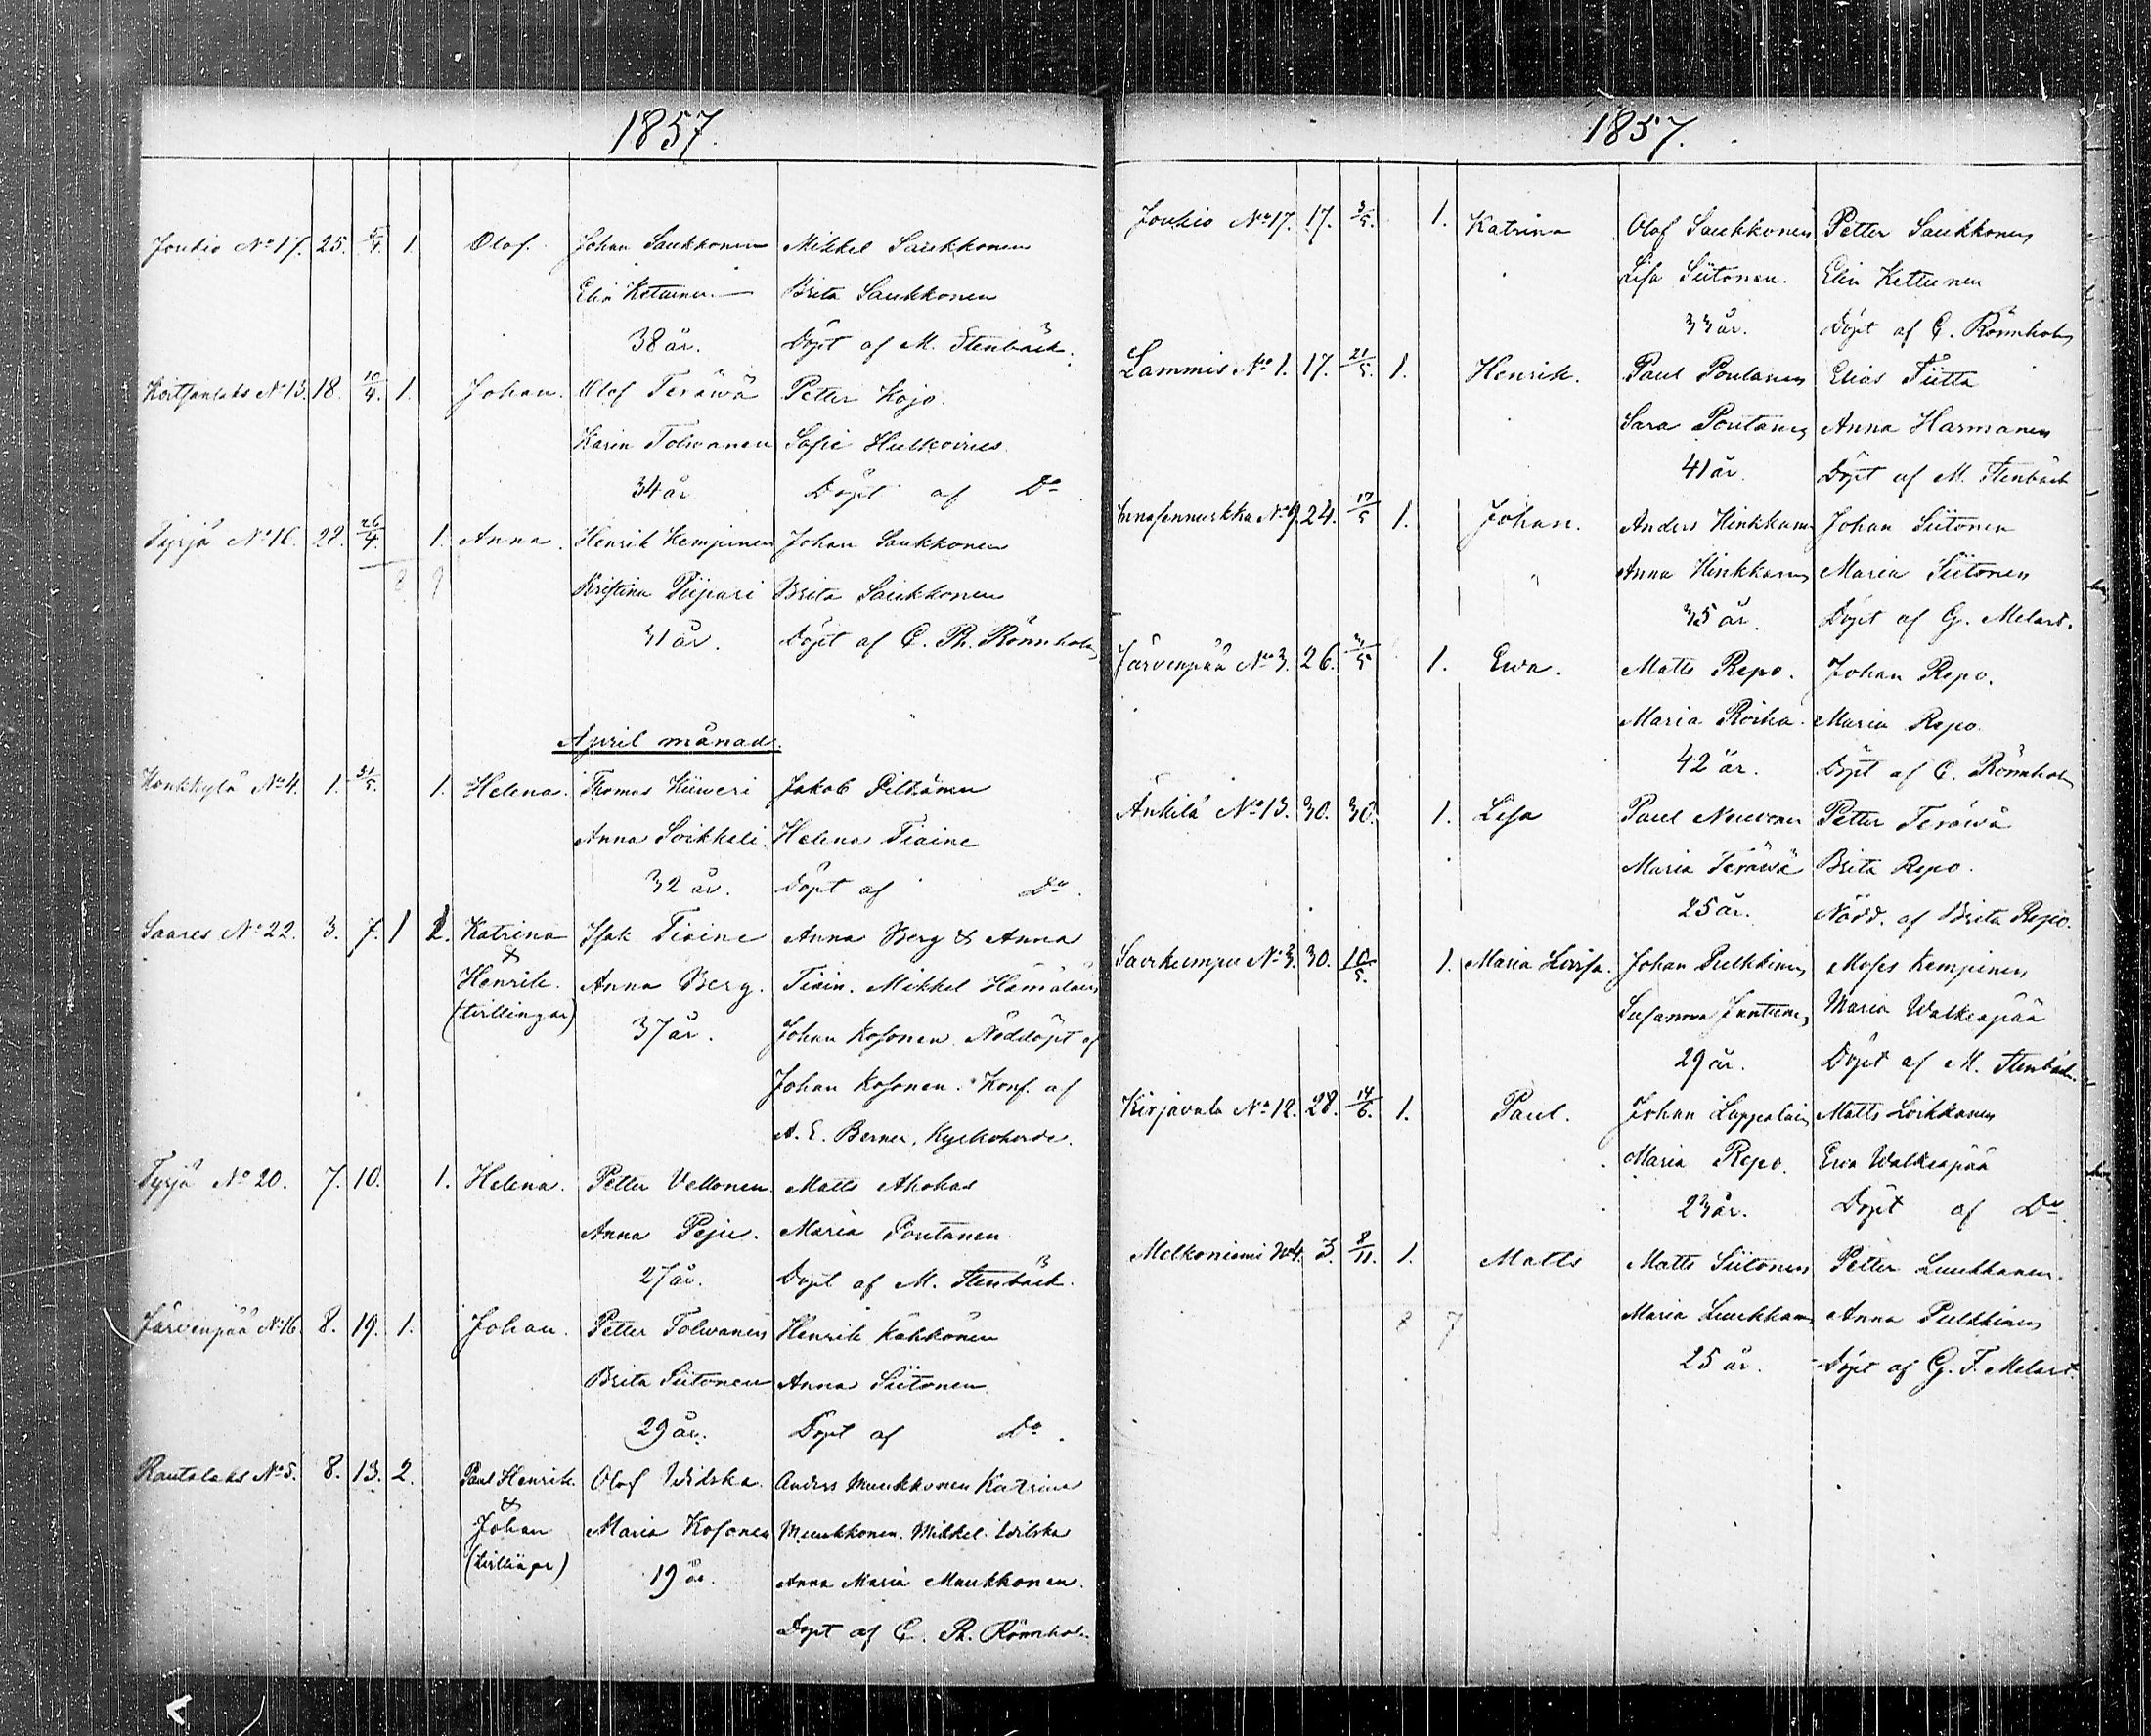 1857.
Joukio No 17. 25. 5/4. 1. Olof. Johan Saukkonen Mikkel Saukkonen
Elin Kettunen Brita Saukkonen
38 år. Döpt af M. Stenbäck.
No 13. 18. 10/4. 1. Johan. Olof Teräwä Petter Kojo.
Karin Tolwanen Sofie
34 år Döpt af Do
Tyrjä No 16. 22. 26/4. 1. Anna. Henrik Kempinen Johan Saukkonen
8 9
Kristina Piipari Brita Saukkonen
31 år. Döpt af C. Rh. Rönnholm
April månad.
Konkkylä No 4. 1. 31/5. 1. Helena. Thomas Kiiweri Jakob Pitkänen
Anna Soikkeli. Helena Tiaine
32 år. Döpt af Do.
Saares No 22. 3. 7. 1 1. Katrina Isak Tiaine Anna Berg & Anna
&
Henrik. Anna Berg. Tiain. Mikkel Hämäläin
(tvillingar) 37 år. Johan Kosonen. Nöddöpt af
Johan Kosonen. Konf. af
A. E. Berner, Kyrkoherde.
Tyrjä No 20. 7. 10. 1. Helena. Petter Vellonen. Matts Ahokas
Anna Peju. Maria Poutanen
27 år. Döpt af M. Stenbäck.
Järvenpää No 16. 8. 19. 1. Johan. Petter Tolwanen Henrik Kähkönen
Brita Siitonen Anna Siitonen
29 år. Döpt af Do.
Rautalaks No 5. 8. 13. 2. Paul Henrik Olof Widska Anders Muukkonen Katrina
&
Johan Maria Kosonen Muukkonen. Mikkel Wilska
(tvillingar) 19 år. Anna Maria Muukkonen.
Döpt af C. Rh. Rönnholm
1857.
Joukio No 17. 17. 3/5. 1. Katrina Olof Saukkonen Petter Saukkonen
Lisa Siitonen. Elin Kettunen
33 år. Döpt af C. Rönnholm
Lammis No 1. 17. 21/5. 1. Henrik. Paul Poutanen Elias Tiitta
Sara Poutanen Anna Harmanen
41 år. Döpt af M. Stenbäck
No 9. 24. 17/5 1. Johan. Anders Hinkkanen Johan Siitonen
Anna Hinkkanen Maria Siitonen
35 år. Döpt af G. Melart.
Järvenpää No 3. 26. 31/5 1. Ewa. Matts Repo. Johan Repo.
Maria Roiha. Maria Repo.
42 år. Döpt af C. Rönnholm
Änkilä No 13. 30. 30. 1. Lisa Paul Neuvonen Petter Teräwä
Maria Teräwä Brita Repo.
25 år. Nödd. af Brita Repo.
No 3. 30. 10/5. 1. Maria Lovisa. Johan Pulkkinen Moses Kempinen
Susanna Juntunen Maria Walkeapää
29 år. Döpt af M. Stenbäck.
Kirjavala No 12. 28. 14/6. 1. Paul. Johan Lappalain Matts Loikkanen
Maria Repo. Ewa Walkeapää
23 år. Döpt af Do.
Melkoniemi No 4. 3. 8/11. 1. Matts Matts Siitonen Petter Luukkanen.
8 7
Maria Luukkanen Anna Pulkkinen
25 år. Döpt af G. F. Melart.